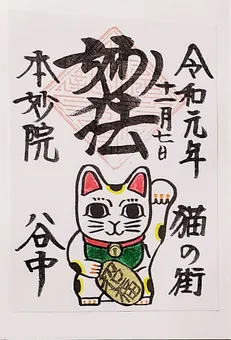 令和元年
十一月七日
妙法
本妙院
猫の街
谷中